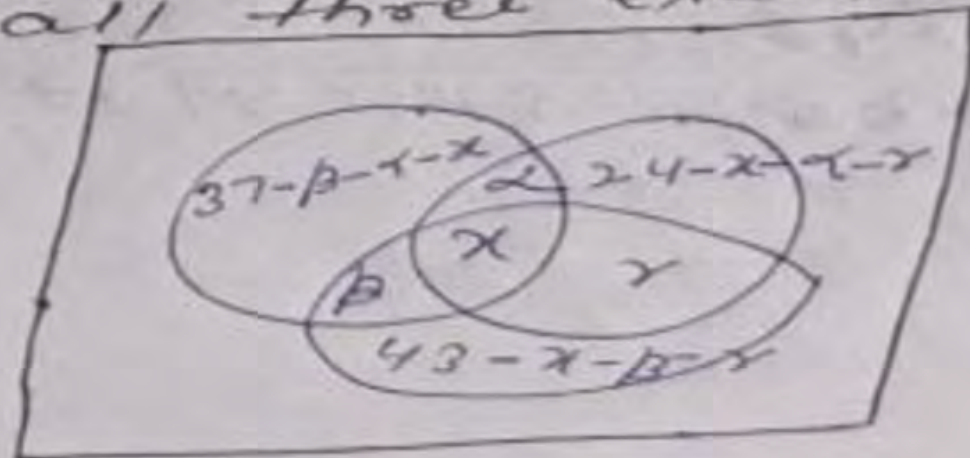 all three
37-β-α-x
α 24-x-α-r
x
r
β
43-x-β-r